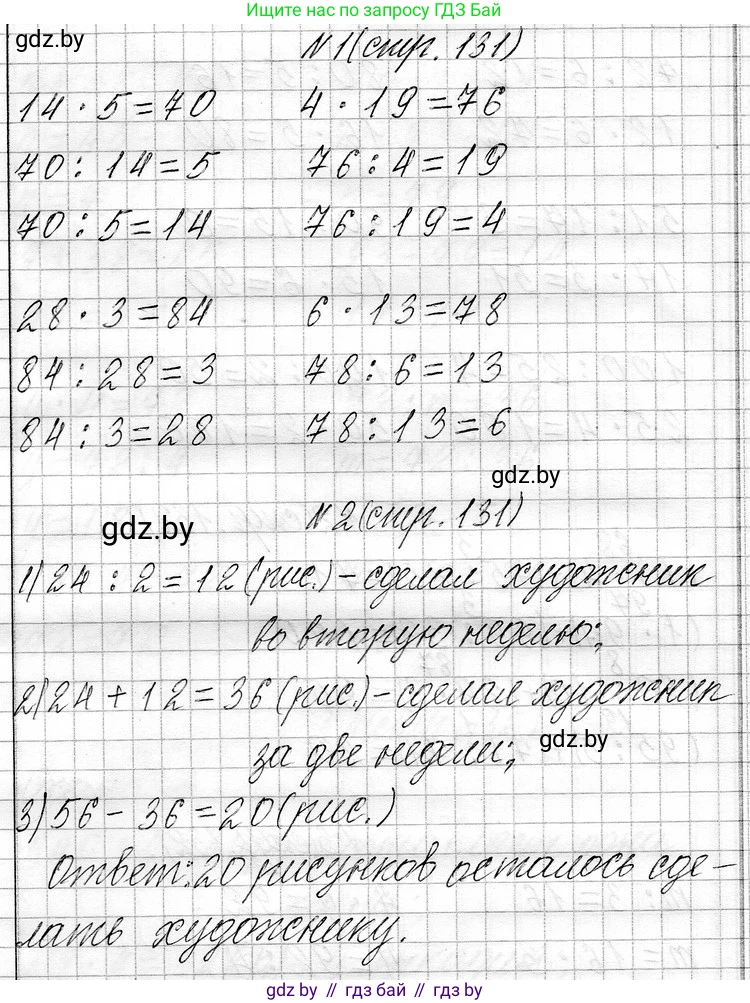 Ищите нас по запросу ГДЗ Бай
gdz.by
№1 (стр. 131)
14 · 5 = 70    4 · 19 = 76
70 : 14 = 5    76 : 4 = 19
70 : 5 = 14    76 : 19 = 4
28 · 3 = 84    6 · 13 = 78
84 : 28 = 3    78 : 6 = 13
84 : 3 = 28    78 : 13 = 6
gdz.by
№2 (стр. 131)
gdz.by
1) 24 : 2 = 12 (рис.) – сделал художник
во вторую неделю;
2) 24 + 12 = 36 (рис.) – сделал художник
за две недели;
gdz.by
3) 56 – 36 = 20 (рис.)
Ответ: 20 рисунков осталось сде-
лать художнику.
gdz.by // гдз бай // gdz.by